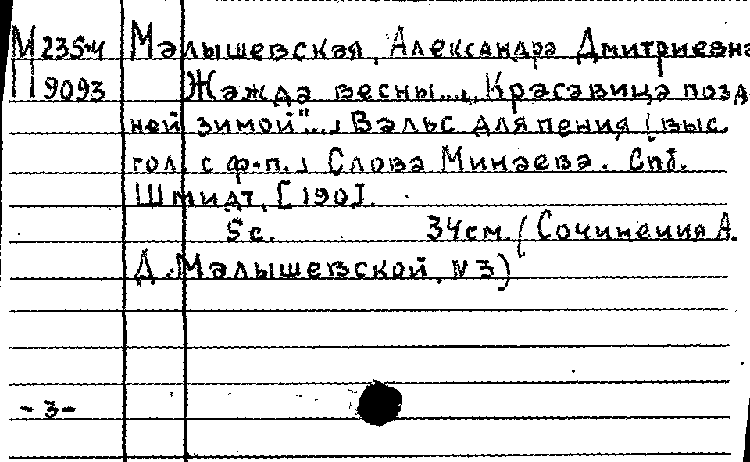 М 235-4 Малышевская, Александра Дмитриевна
П 9093 Жажда весны...„Красавица позд
ней зимой"... Вальс для пения (выс.
гол. с ф-п.) Слова Минаева. Спб.
Шмидт, [190].
5 с. 34 см. (Сочинения А.
Д. Малышевской, N 3)
- 3 -